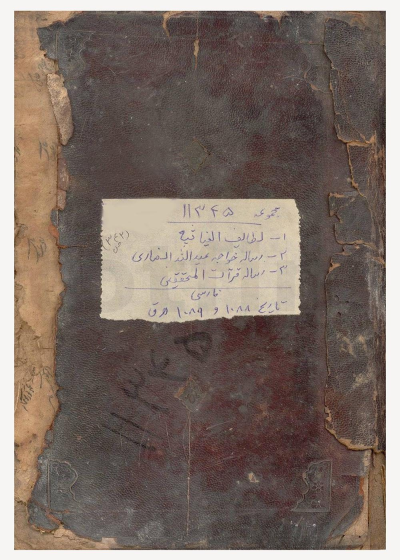 مجموعه ۱۱۳۴۵
۱- لطائف الغیاثیه
۲- رساله خواجه عبدالله انصاری
۳- رساله قرآت المحققین
فارسی
تاریخ ۱۰۸۸ و ۱۰۸۹ هـ ق
۱۱۳۴۵